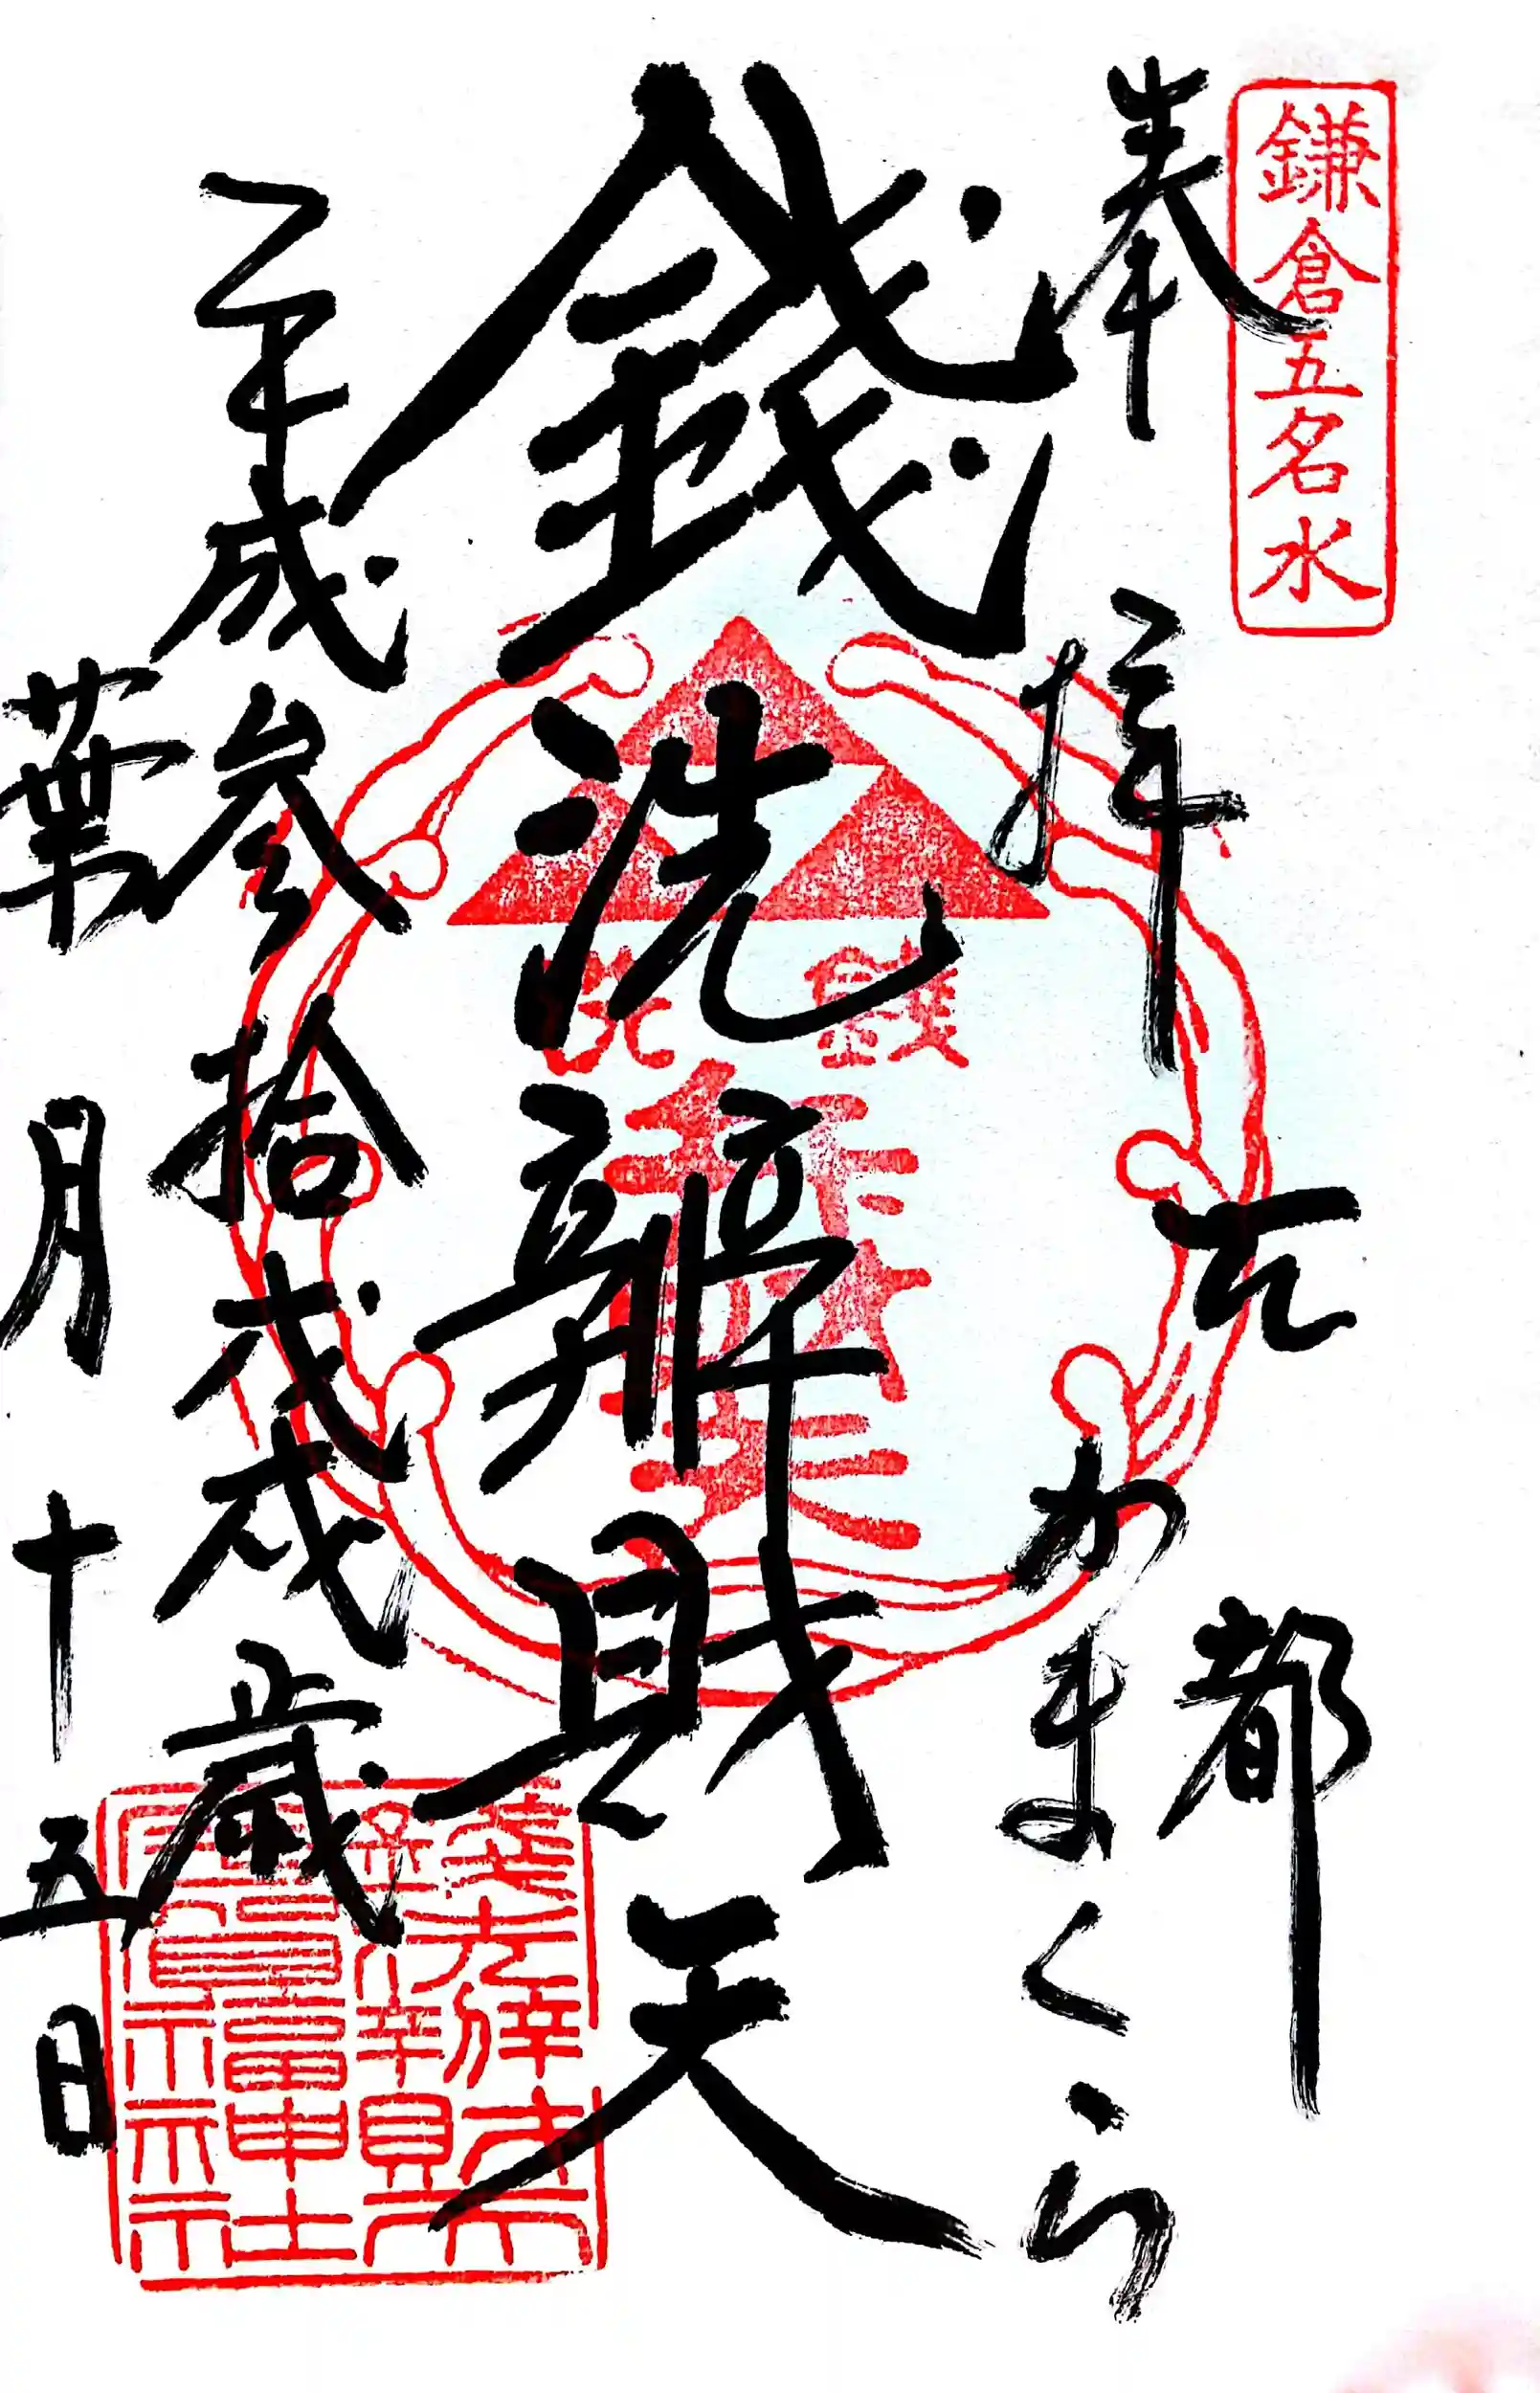 鎌倉五名水
奉拝
古都
かまくら
錢洗辨財天
平成参拾戊戌歳
葉月十五日
錢洗
錢洗辨財天
宇賀福神社